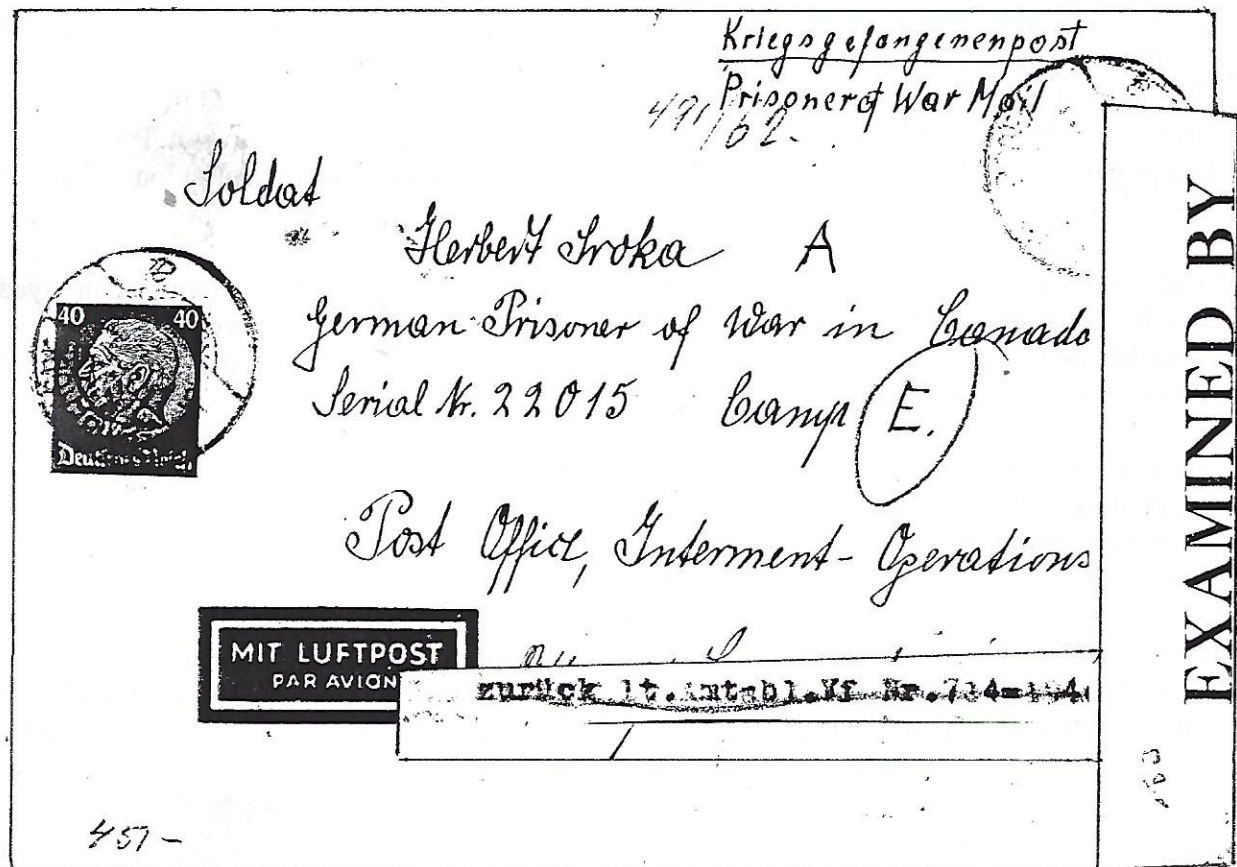 Kriegsgefangenenpost
Prisoner of War Mail
491/62-
Soldat
Herbert Sroka A
German Prisoner of War in Canada
Serial Nr. 22015 Camp E.
Post Office, Interment-Operations
40 40
Deutsches Reich
MIT LUFTPOST
PAR AVION
zurück lt.Amtsbl.Vf Nr.
EXAMINED BY
451-